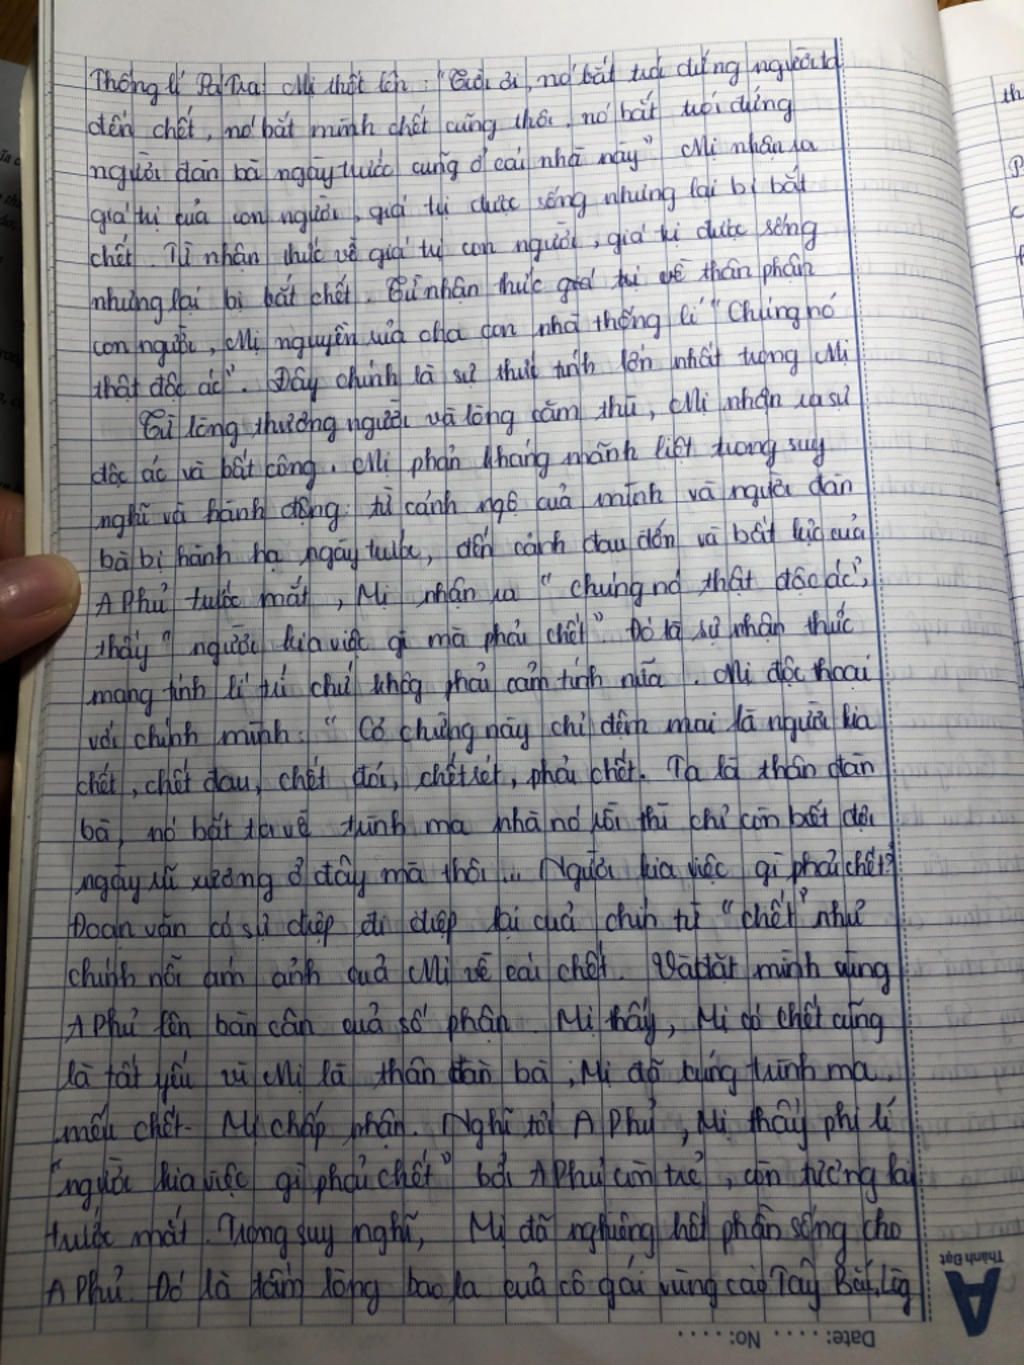 Thống lí Pá Tra. Mị thốt lên: "Trời ơi, nó bắt trói đứng người ta
đến chết, nó bắt mình chết cũng thôi, nó bắt trói đứng
người đàn bà ngày trước cũng ở cái nhà này" Mị nhận ra
giá trị của con người, giá trị được sống nhưng lại bị bắt
chết. Từ nhận thức về giá trị con người, giá trị được sống
nhưng lại bị bắt chết. Từ nhận thức giá trị về thân phận
con người, Mị nguyền rủa cha con nhà thống lí "Chúng nó
thật độc ác". Đây chính là sự thức tỉnh lớn nhất trong Mị
Từ lòng thương người và lòng căm thù, Mị nhận ra sự
độc ác và bất công. Mị phản kháng mãnh liệt trong suy
nghĩ và hành động: từ cảnh ngộ của mình và người đàn
bà bị hành hạ ngày trước, đến cảnh đau đớn và bất lực của
A Phủ trước mắt, Mị nhận ra "chúng nó thật độc ác",
thấy "người kia việc gì mà phải chết" Đó là sự nhận thức
mang tính lí trí chứ không phải cảm tính nữa. Mị độc thoại
với chính mình: "Cơ chừng này chỉ đêm mai là người kia
chết, chết đau, chết đói, chết rét, phải chết. Ta là thân đàn
bà, nó bắt ta về trình ma nhà nó rồi thì chỉ còn biết đợi
ngày rũ xương ở đây mà thôi... Người kia việc gì phải chết?
Đoạn văn có sự điệp đi điệp lại của chữ từ "chết" như
chính nỗi ám ảnh của Mị về cái chết. Và đặt mình cùng
A Phủ lên bàn cân của số phận. Mị thấy, Mị có chết cũng
là tất yếu vì Mị là thân đàn bà, Mị đã cúng trình ma,
nếu chết Mị chấp nhận. Nghĩ tới A Phủ, Mị thấy phi lí
"người kia việc gì phải chết" bởi A Phủ còn trẻ, còn tương lai
trước mắt. Trong suy nghĩ, Mị đã nghiêng hết phần sống cho
A Phủ. Đó là tấm lòng bao la của cô gái vùng cao Tây Bắc, lòng
Thành Đạt
Date: ..... No: .....